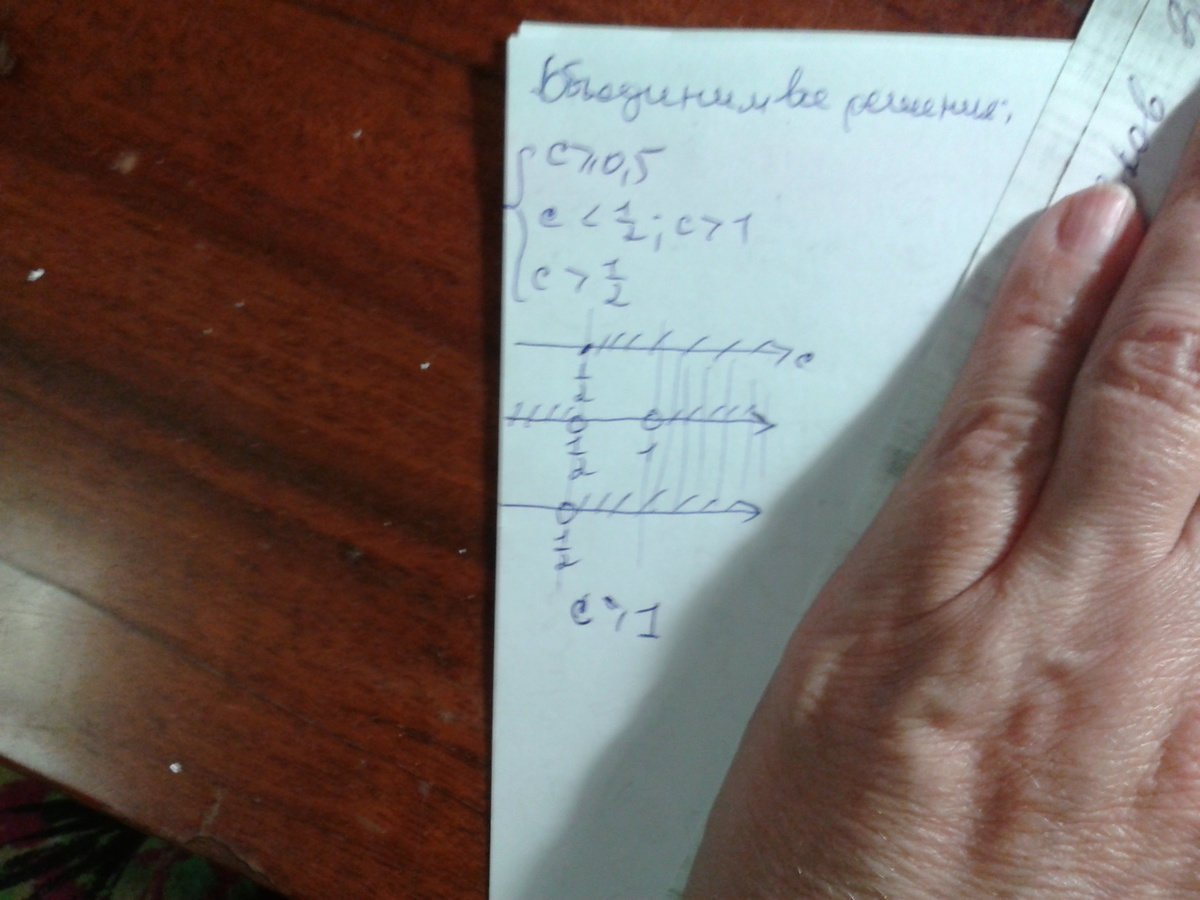 Объединим все решения:
c ⩾ 0,5
c < 1/2; c > 1
c > 1/2
c
1/2
1/2 1
1/2
c > 1